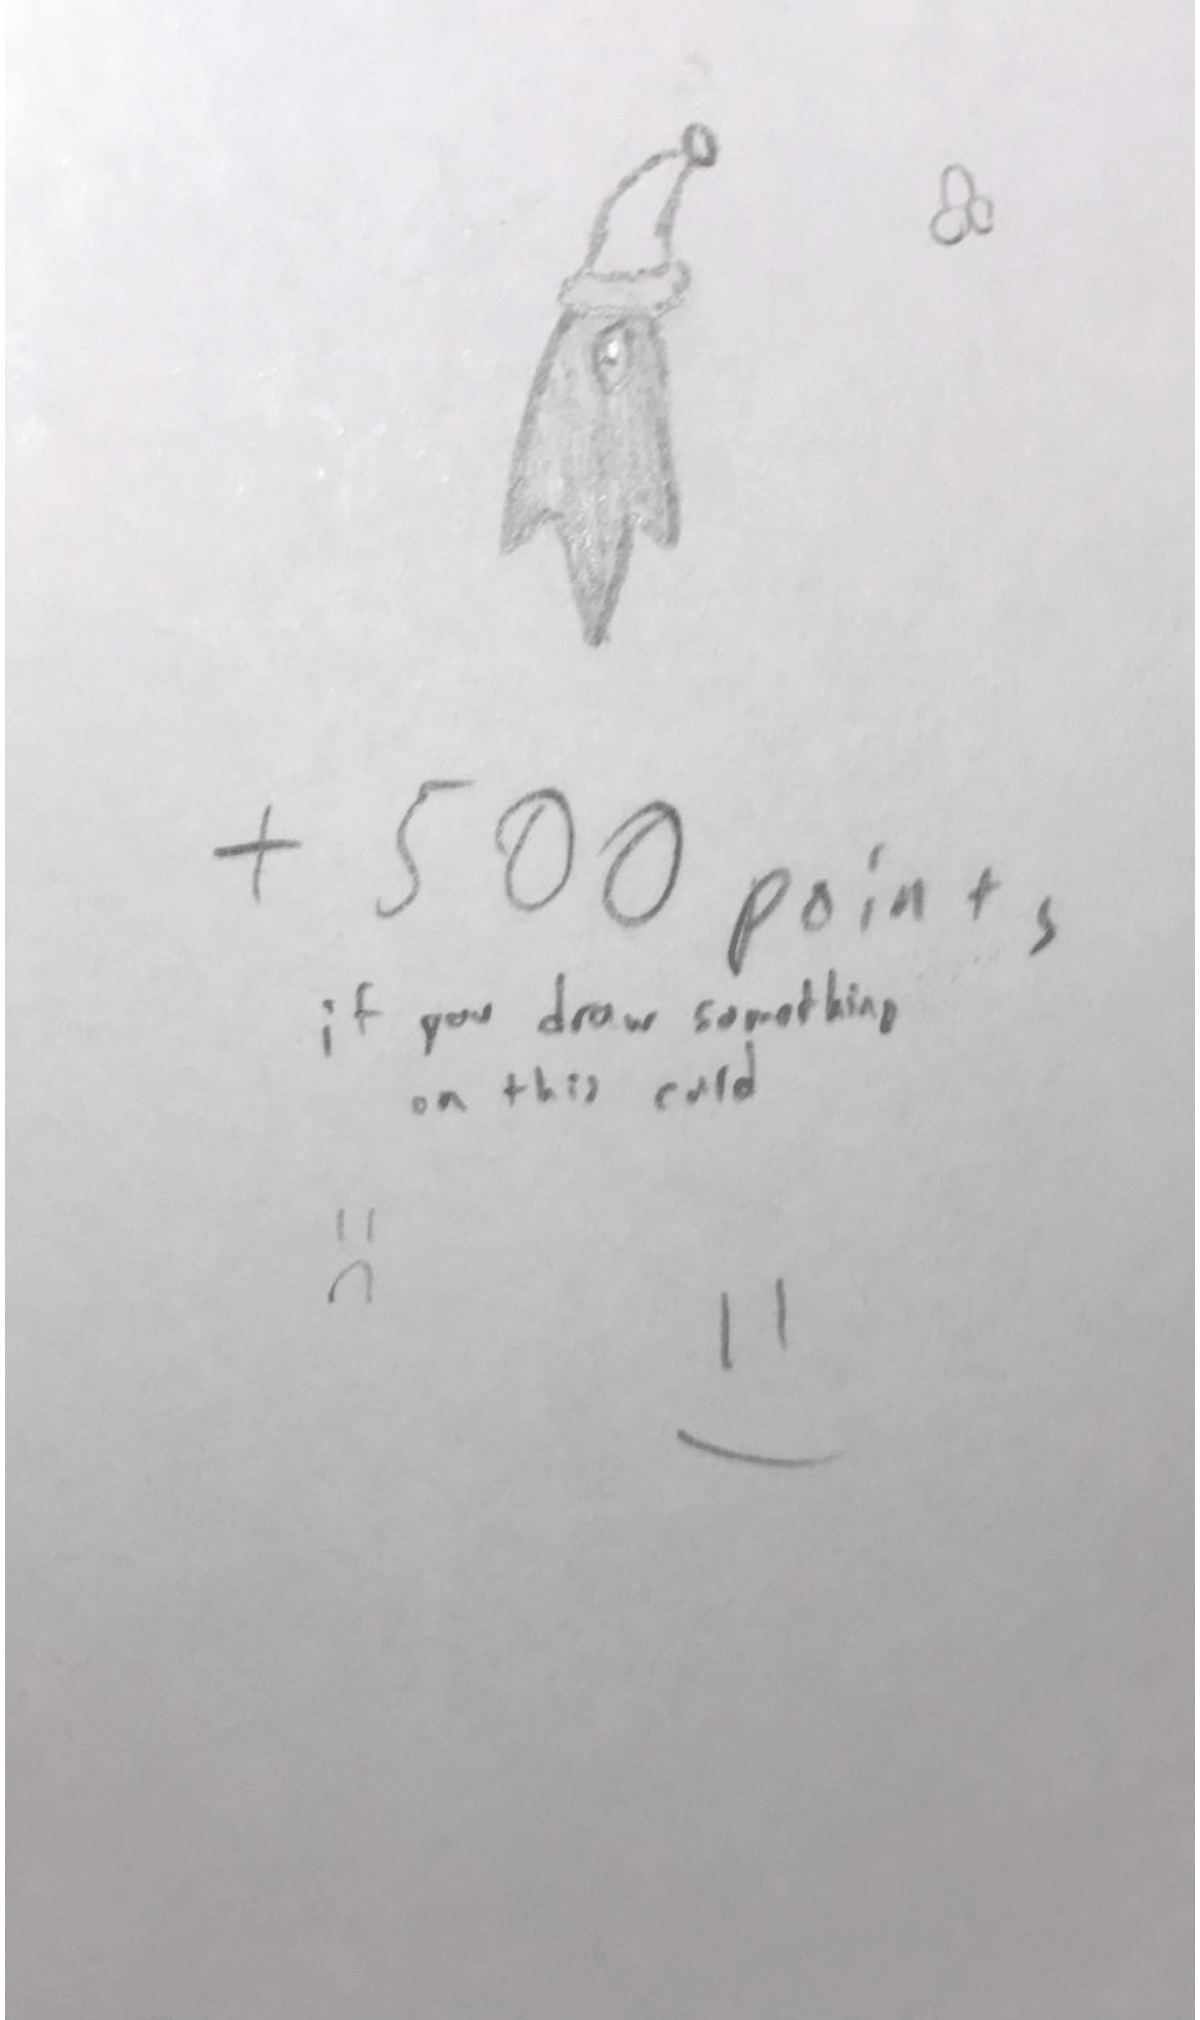 + 500 points
if you draw something
on this card